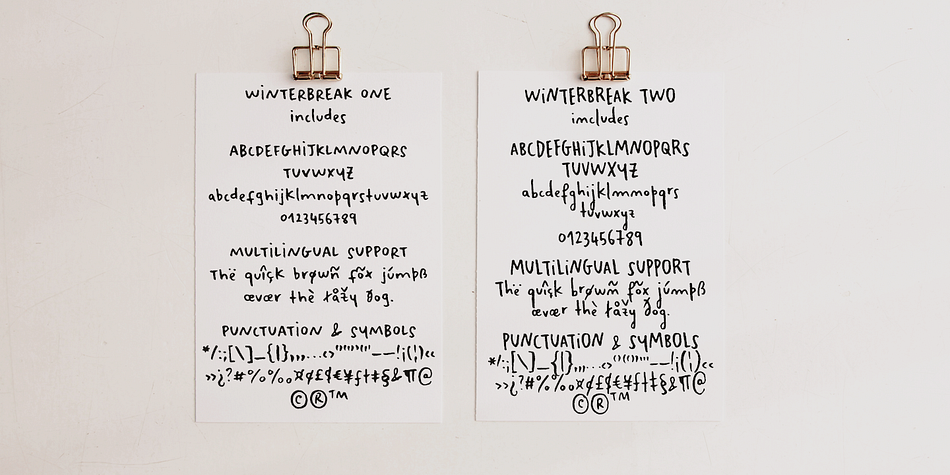 WiNTERBREAK ONE
includes
ABCDEFGHiJKLMNOPQRS
TUVWXYZ
abcdefghijklmnopqrstuvwxyz
0123456789
MULTiLiNGUAL SUPPORT
Thë quîçk brøwñ fõx júmpß
œvær thè łåžy ðog.
PUNCTUATiON & SYMBOLS
*/:;[\]_{|}‚„,…‹›"''""''"–—!¡(¦)‹‹
››¿?#%‰¤¢£$€¥ƒ†‡§&¶@
©®™
WiNTERBREAK TWO
includes
ABCDEFGHiJKLMNOPQRS
TUVWXYZ
abcdefghijklmnopqrs
tuvwxyz
0123456789
MULTiLiNGUAL SUPPORT
Thë quîçk brøwñ fõx júmpß
œvær thè łåžy ðog.
PUNCTUATiON & SYMBOLS
*/:;[\]_{|}‚„,…‹›"''""''"–—!¡(¦)‹‹
››¿?#%‰¤¢£$€¥ƒ†‡§&¶@
©®™